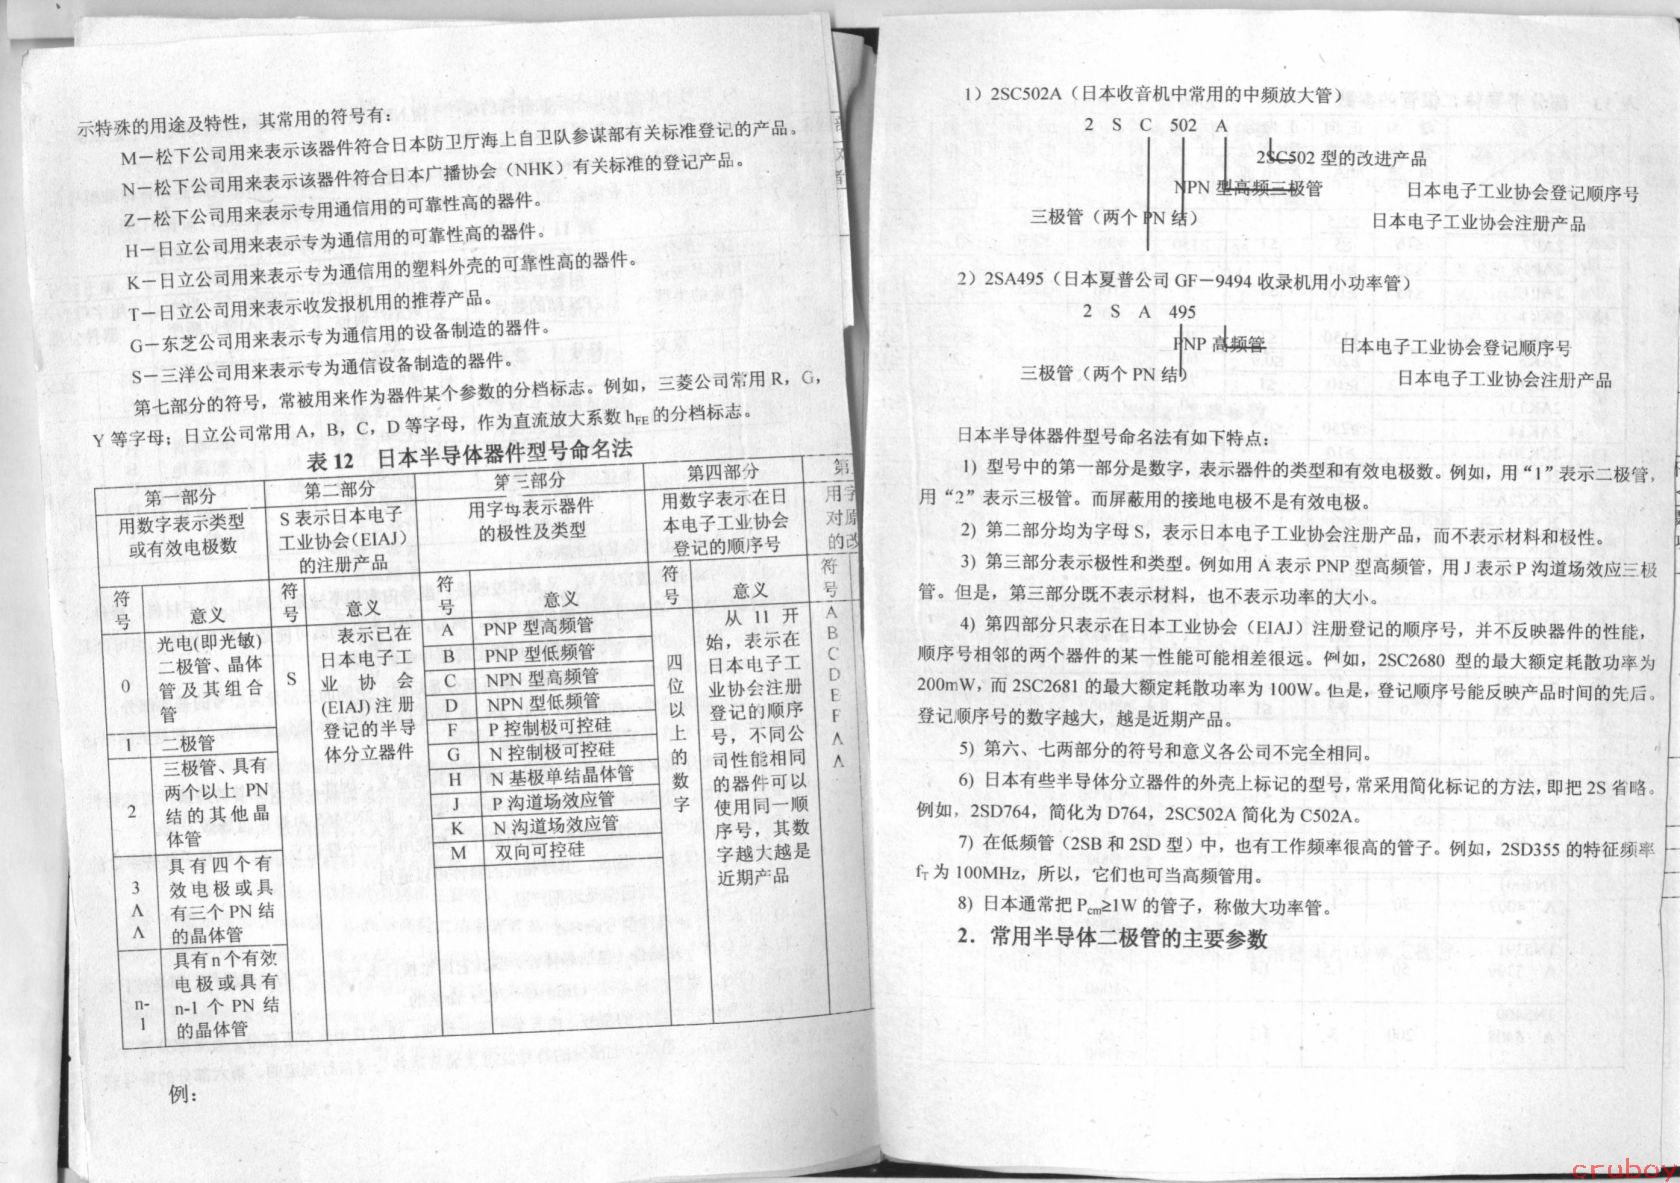 示特殊的用途及特性，其常用的符号有：
M－松下公司用来表示该器件符合日本防卫厅海上自卫队参谋部有关标准登记的产品。
N－松下公司用来表示该器件符合日本广播协会（NHK）有关标准的登记产品。
Z－松下公司用来表示专用通信用的可靠性高的器件。
H－日立公司用来表示专为通信用的可靠性高的器件。
K－日立公司用来表示专为通信用的塑料外壳的可靠性高的器件。
T－日立公司用来表示收发报机用的推荐产品。
G－东芝公司用来表示专为通信用的设备制造的器件。
S－三洋公司用来表示专为通信设备制造的器件。
第七部分的符号，常被用来作为器件某个参数的分档标志。例如，三菱公司常用 R，G，
Y 等字母；日立公司常用 A，B，C，D 等字母，作为直流放大系数 hFE 的分档标志。
表 12 日本半导体器件型号命名法
第一部分 第二部分 第三部分 第四部分 第
用数字表示类型 S 表示日本电子 用字母表示器件 用数字表示在日 用字
或有效电极数 工业协会（EIAJ） 的极性及类型 本电子工业协会 对原
的注册产品 登记的顺序号 的改
符号 意义 符号 意义 符号 意义 符号 意义 符号
0 光电(即光敏)
二极管、晶体
管及其组合
管
1 二极管
2 三极管、具有
两个以上 PN
结的其他晶
体管
3 具有四个有
∧ 效电极或具
∧ 有三个 PN 结
的晶体管
n-1 具有 n 个有效
电极或具有
n-1 个 PN 结
的晶体管
S 表示已在
日本电子工
业协会
(EIAJ) 注册
登记的半导
体分立器件
A PNP 型高频管
B PNP 型低频管
C NPN 型高频管
D NPN 型低频管
F P 控制极可控硅
G N 控制极可控硅
H N 基极单结晶体管
J P 沟道场效应管
K N 沟道场效应管
M 双向可控硅
四位以上的数字
从 11 开
始，表示在
日本电子工
业协会注册
登记的顺序
号，不同公
司性能相同
的器件可以
使用同一顺
序号，其数
字越大越是
近期产品
A
B
C
D
E
F
∧
∧
例：
1）2SC502A（日本收音机中常用的中频放大管）
2 S C 502 A
2SC502 型的改进产品
NPN 型高频三极管 日本电子工业协会登记顺序号
三极管（两个 PN 结） 日本电子工业协会注册产品
2）2SA495（日本夏普公司 GF－9494 收录机用小功率管）
2 S A 495
PNP 高频管 日本电子工业协会登记顺序号
三极管（两个 PN 结） 日本电子工业协会注册产品
日本半导体器件型号命名法有如下特点：
1）型号中的第一部分是数字，表示器件的类型和有效电极数。例如，用“1”表示二极管，
用“2”表示三极管。而屏蔽用的接地电极不是有效电极。
2）第二部分均为字母 S，表示日本电子工业协会注册产品，而不表示材料和极性。
3）第三部分表示极性和类型。例如用 A 表示 PNP 型高频管，用 J 表示 P 沟道场效应三极
管。但是，第三部分既不表示材料，也不表示功率的大小。
4）第四部分只表示在日本工业协会（EIAJ）注册登记的顺序号，并不反映器件的性能，
顺序号相邻的两个器件的某一性能可能相差很远。例如，2SC2680 型的最大额定耗散功率为
200mW，而 2SC2681 的最大额定耗散功率为 100W。但是，登记顺序号能反映产品时间的先后。
登记顺序号的数字越大，越是近期产品。
5）第六、七两部分的符号和意义各公司不完全相同。
6）日本有些半导体分立器件的外壳上标记的型号，常采用简化标记的方法，即把 2S 省略。
例如，2SD764，简化为 D764，2SC502A 简化为 C502A。
7）在低频管（2SB 和 2SD 型）中，也有工作频率很高的管子。例如，2SD355 的特征频率
fT 为 100MHz，所以，它们也可当高频管用。
8）日本通常把 Pcm≥1W 的管子，称做大功率管。
2．常用半导体二极管的主要参数
cruboy